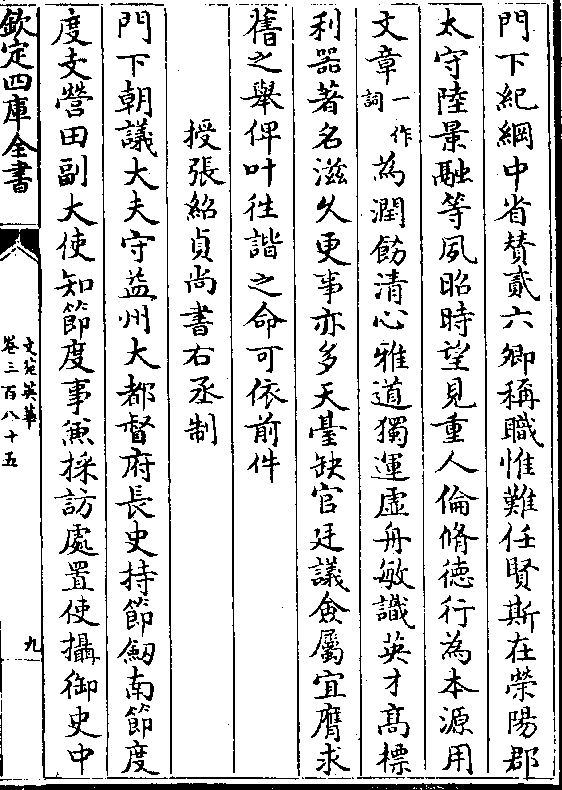 門下紀綱中省賛貳六卿稱職惟難任賢斯在榮陽郡
太守陸景融等夙昭時望見重人倫脩徳行為本源用
文章一作詞為潤飭清心雅道獨運虚舟敏識英才髙標
利器著名滋久更事亦多天臺缺官廷議僉屬宜膺求
舊之舉俾叶徃諧之命可依前件
授張紹貞尚書右丞制
門下朝議大夫守益州大都督府長史持節劒南節度
度支營田副大使知節度事兼採訪處置使攝御史中
欽定四庫全書
文苑英華
卷三百八十五
九